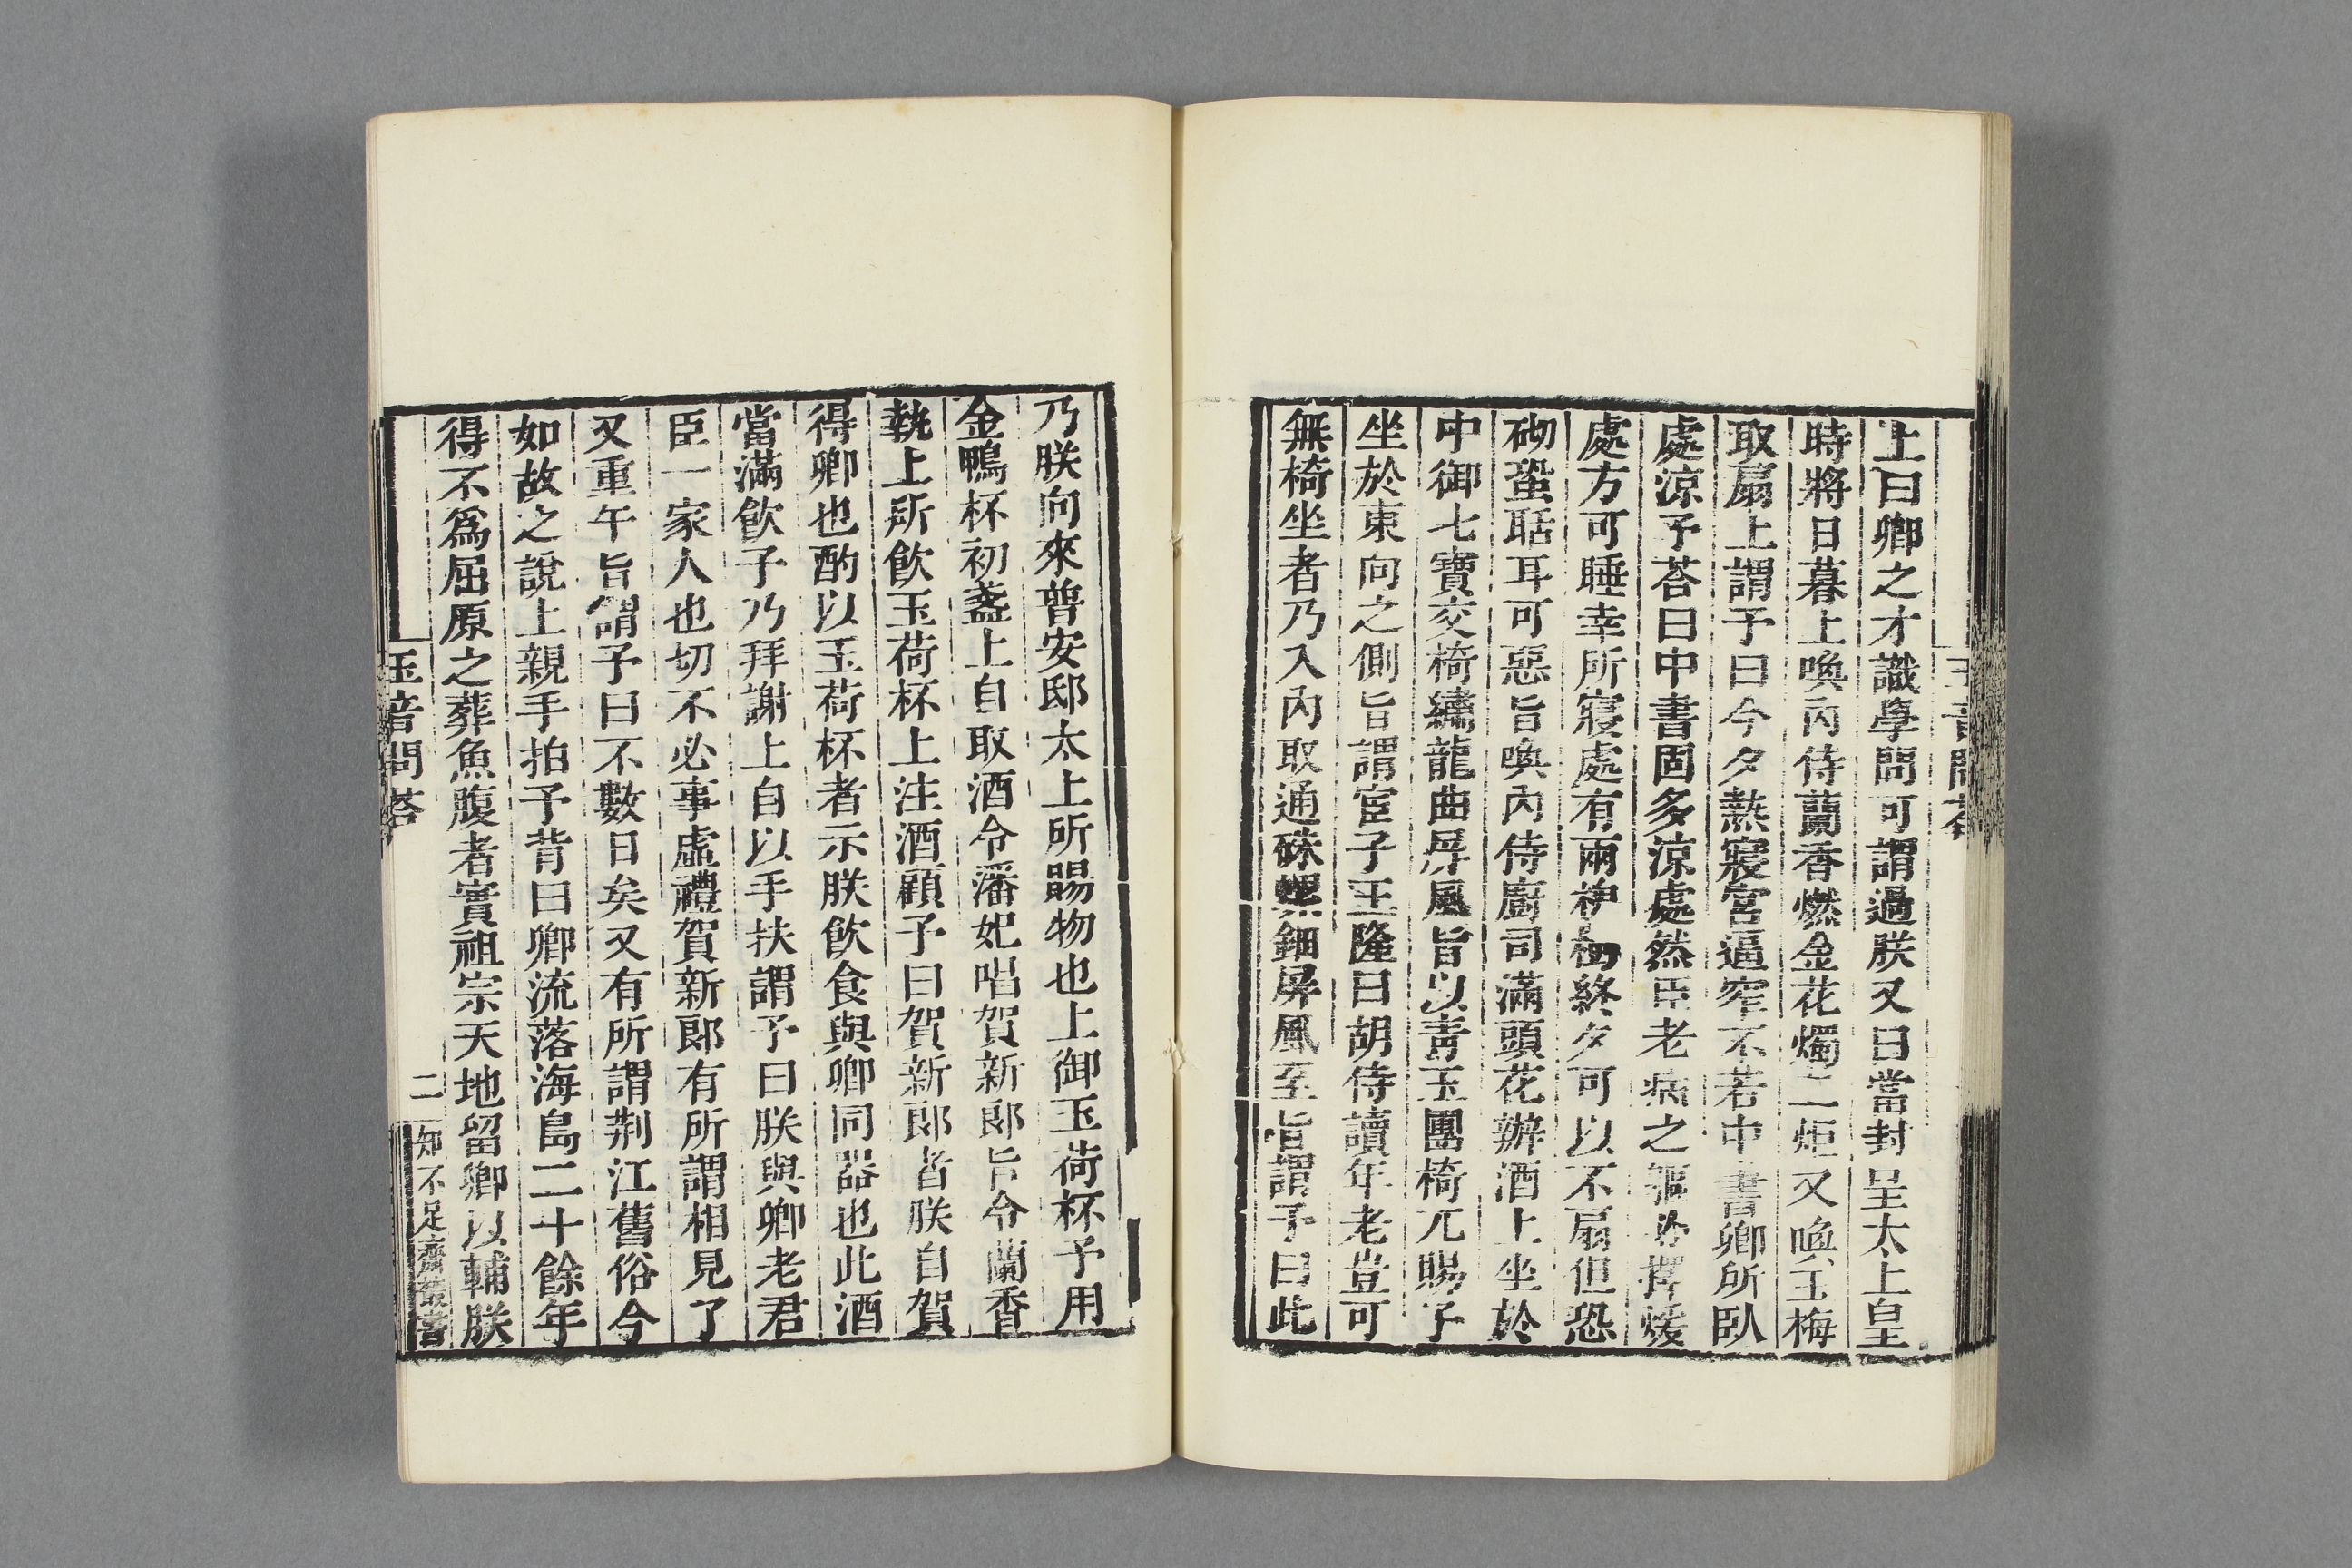 上曰卿之才識學問可謂過朕又曰當封呈太上皇
時將日暮上喚內侍蘭香燃金花燭二炬又喚玉梅
取扇上謂予曰今夕熱寢宮逼窄不若中書卿所臥
處涼予荅曰中書固多涼處然臣老病之軀必擇煖
處方可睡幸所寢處有兩枷終夕可以不扇但恐
砌蛩聒耳可惡旨喚內侍廚司滿頭花辦酒上坐於
中御七寶交椅繡龍曲屏風旨以青玉團椅兀賜予
坐於東向之側旨謂宦子王隆曰胡侍讀年老豈可
無椅坐者乃入內取通硃螺鈿屏風至旨謂予曰此
玉音問荅
乃朕向來曾安邸太上所賜物也上御玉荷杯予用
金鴨杯初盞上自取酒令潘妃唱賀新郎旨令蘭香
執上所飲玉荷杯上注酒顧予曰賀新郎者朕自賀
得卿也酌以玉荷杯者示朕飲食與卿同器也此酒
當滿飲予乃拜謝上自以手扶謂予曰朕與卿老君
臣一家人也切不必事虛禮賀新郎有所謂相見了
又重午旨謂予曰不數日矣又有所謂荆江舊俗今
如故之說上親手拍予背曰卿流落海島二十餘年
得不爲屈原之葬魚腹者實祖宗天地留卿以輔朕
玉音問荅
二
知不足齋叢書